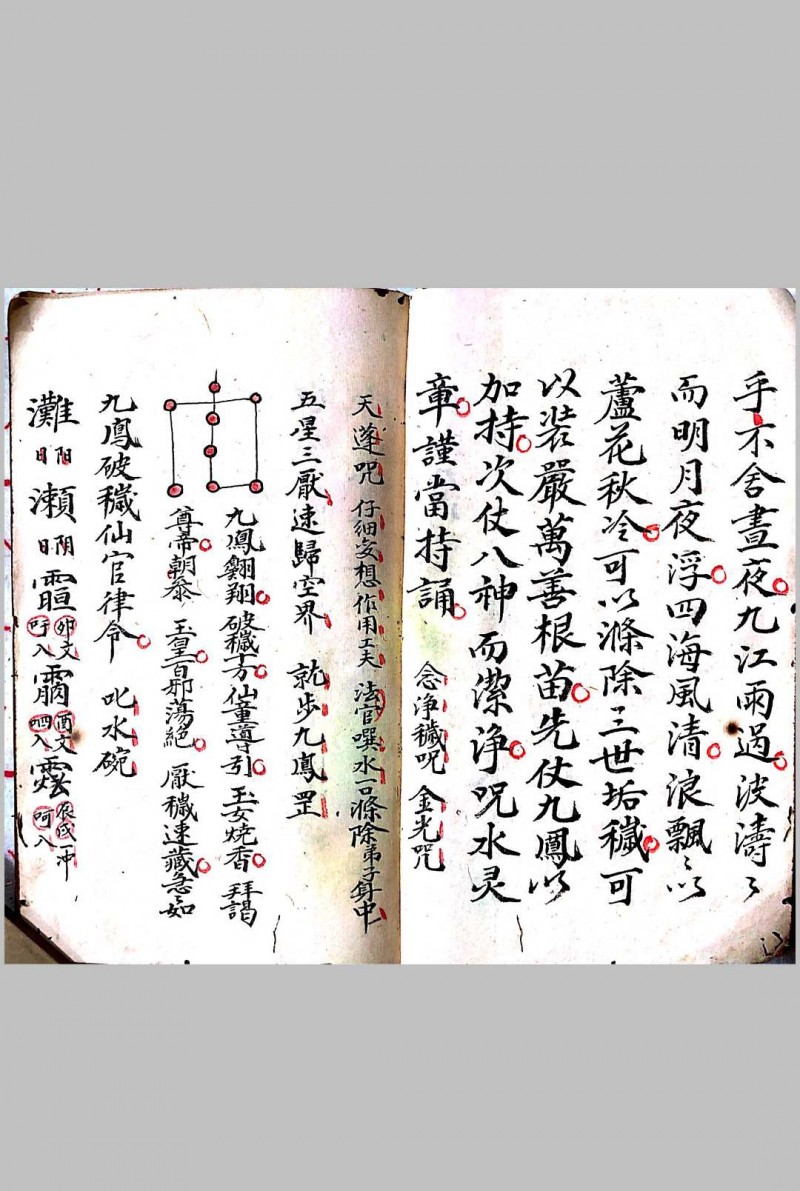 乎不舍晝夜九江雨過波濤〻
而明月夜浮四海風清浪飄〻以
蘆花秋冷可以滌除三世垢穢可
以裝嚴萬善根苗先仗九鳳以
加持次仗八神而潔淨呪水灵
章謹當持誦 念淨穢呪 金光呪
天蓬呪 仔細妄想作用工夫 法官噀水一口滌除弟子身中
五星三厭速歸空界 就步九鳳罡
九鳳翱翔破穢十方仙童導引玉女燒香拜謁
尊帝朝叅玉皇百邪蕩絕厭穢速藏急如
九鳳破穢仙官律令 叱水碗
灘 日陽 瀬 日陰 䨩 卯文 吘入 䨻 酉文 呬入 霐 辰戌一冲 呵入